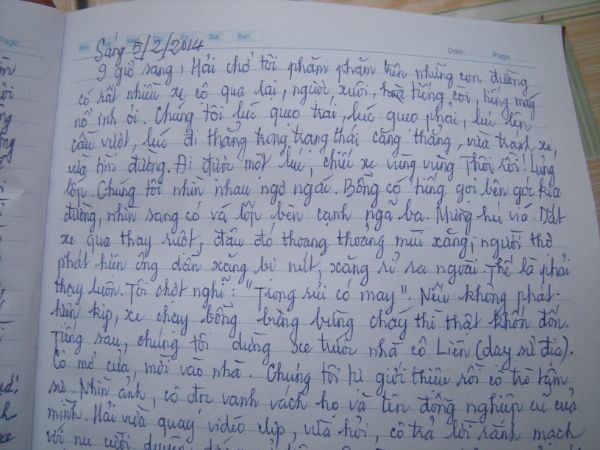 Page:
Wed Sat Sun
Date: Page:
Sáng 5/2/2014
9 giờ sáng, Hải chở tôi phăm phăm trên những con đường
có rất nhiều xe cộ qua lại, người xuôi, tiếng còi, tiếng máy
nổ inh ỏi. Chúng tôi lúc quẹo trái, lúc quẹo phải, lúc lên
cầu vượt, lúc đi thẳng trong trạng thái căng thẳng, vừa tránh xe,
vừa tìm đường. Đi được một lúc, chiếc xe vùng vùng Thôi rồi! Lủng
lốp. Chúng tôi nhìn nhau ngơ ngác. Bỗng có tiếng gọi bên góc kia
đường, nhìn sang có vá lốp bên cạnh ngã ba. Mừng hú vía. Dắt
xe qua thay ruột, đâu đó thoang thoảng mùi xăng, người thợ
phát hiện ống dẫn xăng bị nứt, xăng rỉ ra ngoài. Thế là phải
thay luôn. Tôi chợt nghĩ: "Trong rủi có may". Nếu không phát
hiện kịp, xe chạy bỗng bừng bừng cháy thì thật khốn đốn.
Tiếng sau, chúng tôi dừng xe trước nhà cô Liên (dạy sử địa).
Cô mở cửa, mời vào nhà. Chúng tôi giới thiệu rồi cô trò tâm
sự. Nhìn ảnh, cô đọc vanh vách họ và tên đồng nghiệp cũ của
mình. Hải vừa quay video clip, vừa hỏi, cô trả lời rành mạch
với nụ cười duyên